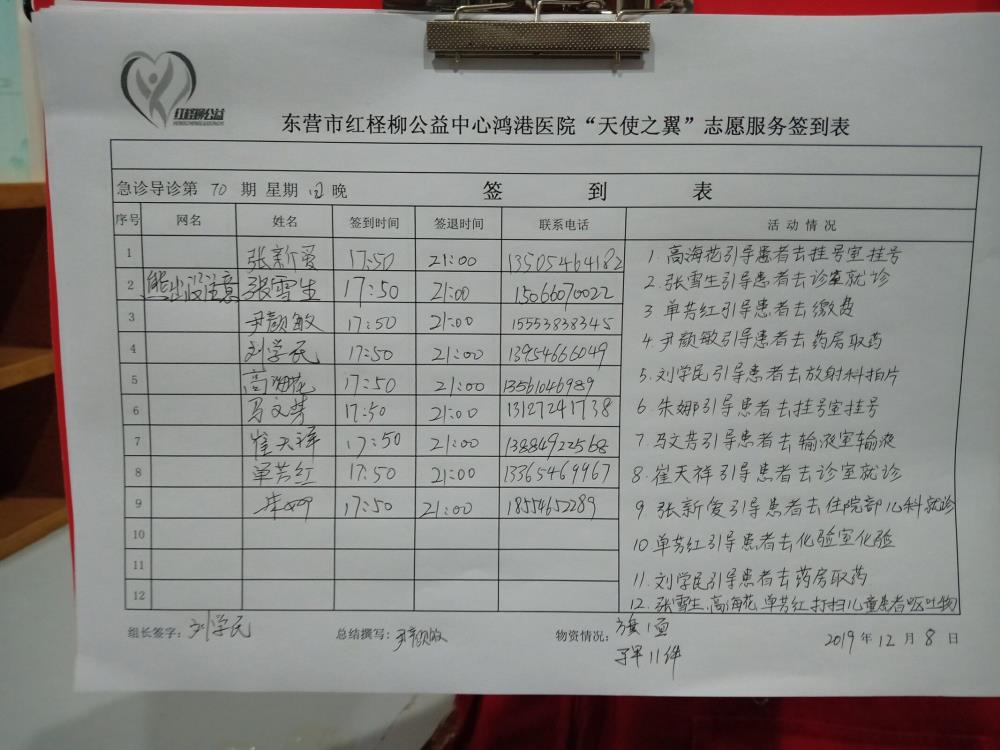 红柽柳公益
东营市红柽柳公益中心鸿港医院“天使之翼”志愿服务签到表
急诊导诊第 70 期 星期 日 晚 签到表
序号 网名 姓名 签到时间 签退时间 联系电话 活动情况
1 张新爱 17:50 21:00 13505464182 1. 高海花引导患者去挂号室挂号
2 熊出没注意 张雪生 17:50 21:00 15066070022 2. 张雪生引导患者去诊室就诊
3 尹颜敏 17:50 21:00 15553838345 3 单芳红引导患者去缴费
4 刘学民 17:50 21:00 13954666049 4. 尹颜敏引导患者去药房取药
5 高海花 17:50 21:00 13561046989 5. 刘学民引导患者去放射科拍片
6 马文芳 17:50 21:00 13127241738 6. 朱娜引导患者去挂号室挂号
7 崔天祥 17:50 21:00 13884922568 7 马文芳引导患者去输液室输液
8 单芳红 17:50 21:00 13365469967 8. 崔天祥引导患者去诊室就诊
9 朱娜 17:50 21:00 18554652289 9 张新爱引导患者去住院部儿科就诊
10 10 单芳红引导患者去化验室化验
11 11. 刘学民引导患者去药房取药
12 12. 张雪生、高海花、单芳红打扫儿童患者呕吐物
组长签字: 刘学民 总结撰写: 尹颜敏 物资情况: 旗1面 2019年12月8日
11件